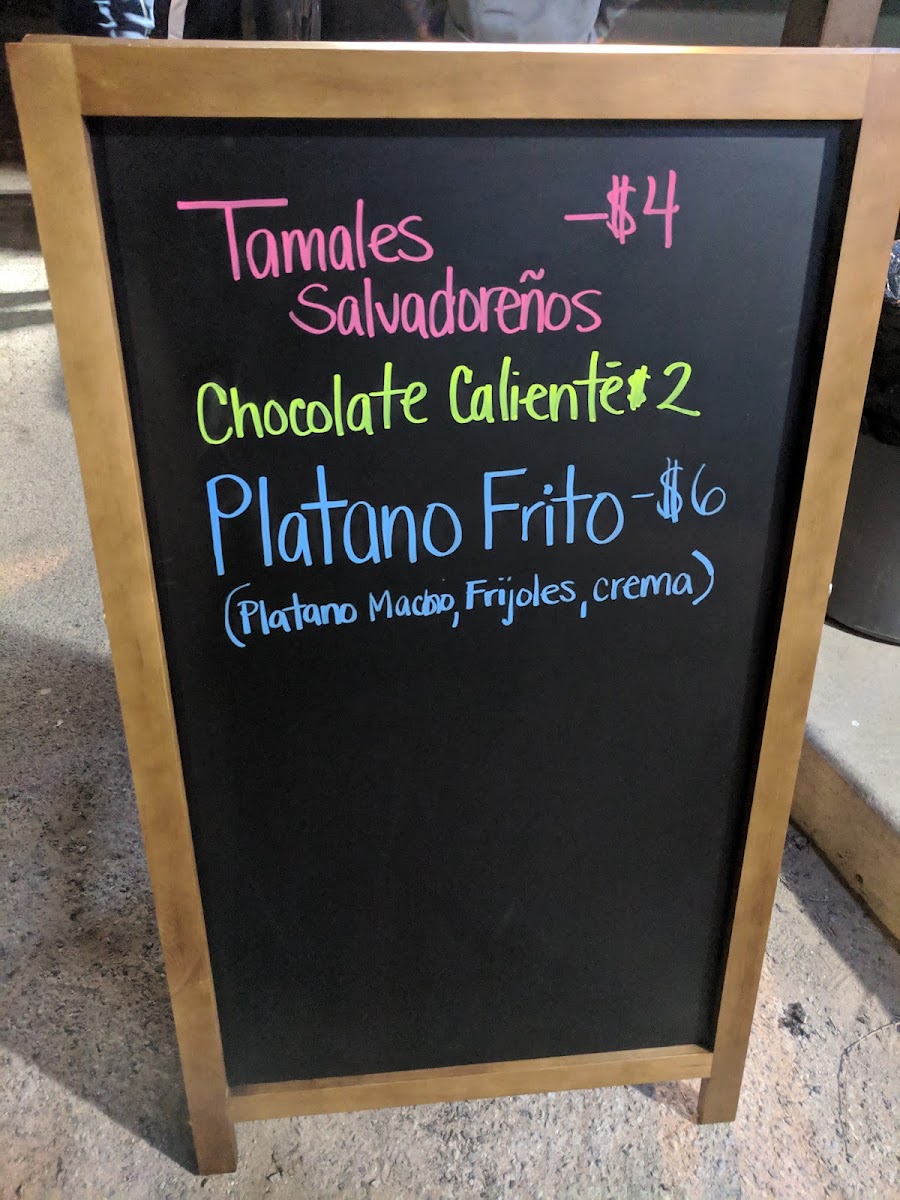 Tamales -$4
Salvadoreños
Chocolate Caliente-$2
Platano Frito-$6
(Platano Macho, Frijoles, crema)